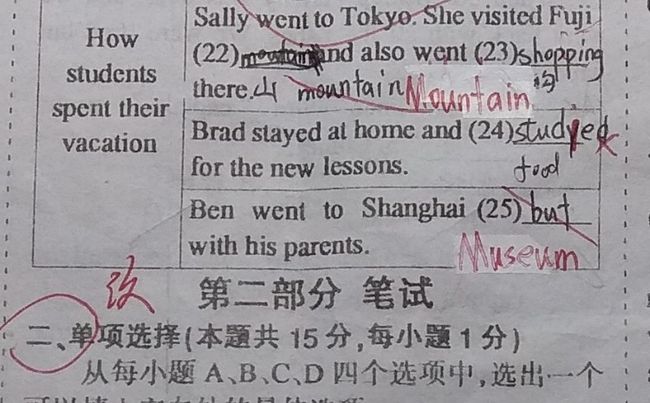 How students spent their vacation
Sally went to Tokyo. She visited Fuji
(22) mountain and also went (23) shopping
there. 山 mountain Mountain 购
Brad stayed at home and (24) studyed
for the new lessons. food
Ben went to Shanghai (25) but
with his parents. Museum
改 第二部分 笔试
二、单项选择(本题共 15 分,每小题 1 分)
从每小题 A、B、C、D 四个选项中,选出一个